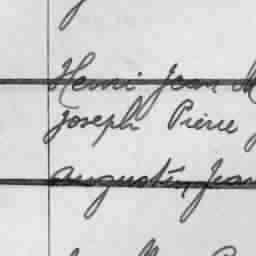 Henri Jean M
Joseph Pierre J
Augustin, Jean